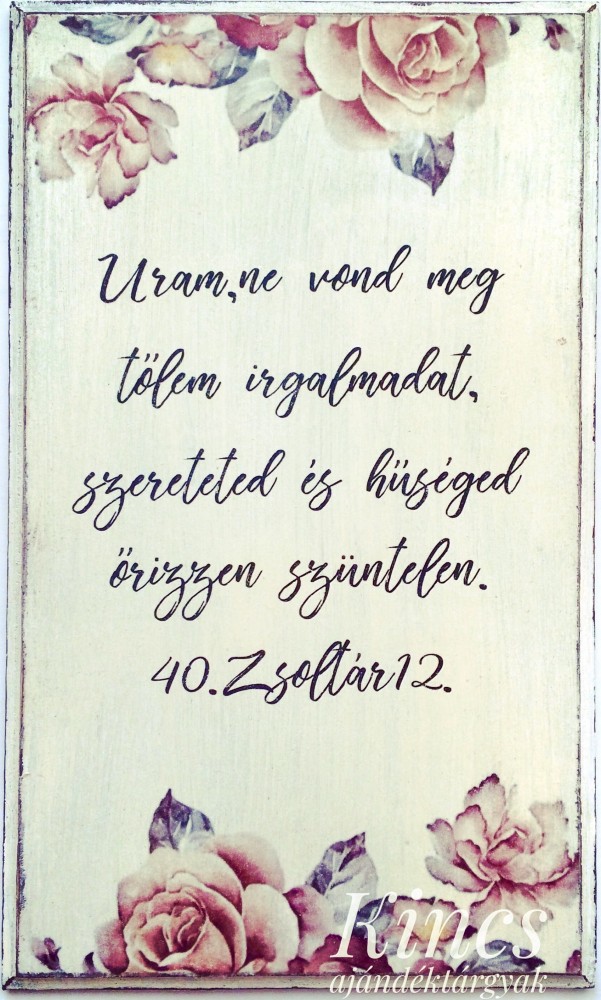 Uram,ne vond meg
tőlem irgalmadat,
szereteted és hűséged
őrizzen szüntelen.
40.Zsoltár12.
Kincs
ajándéktárgyak